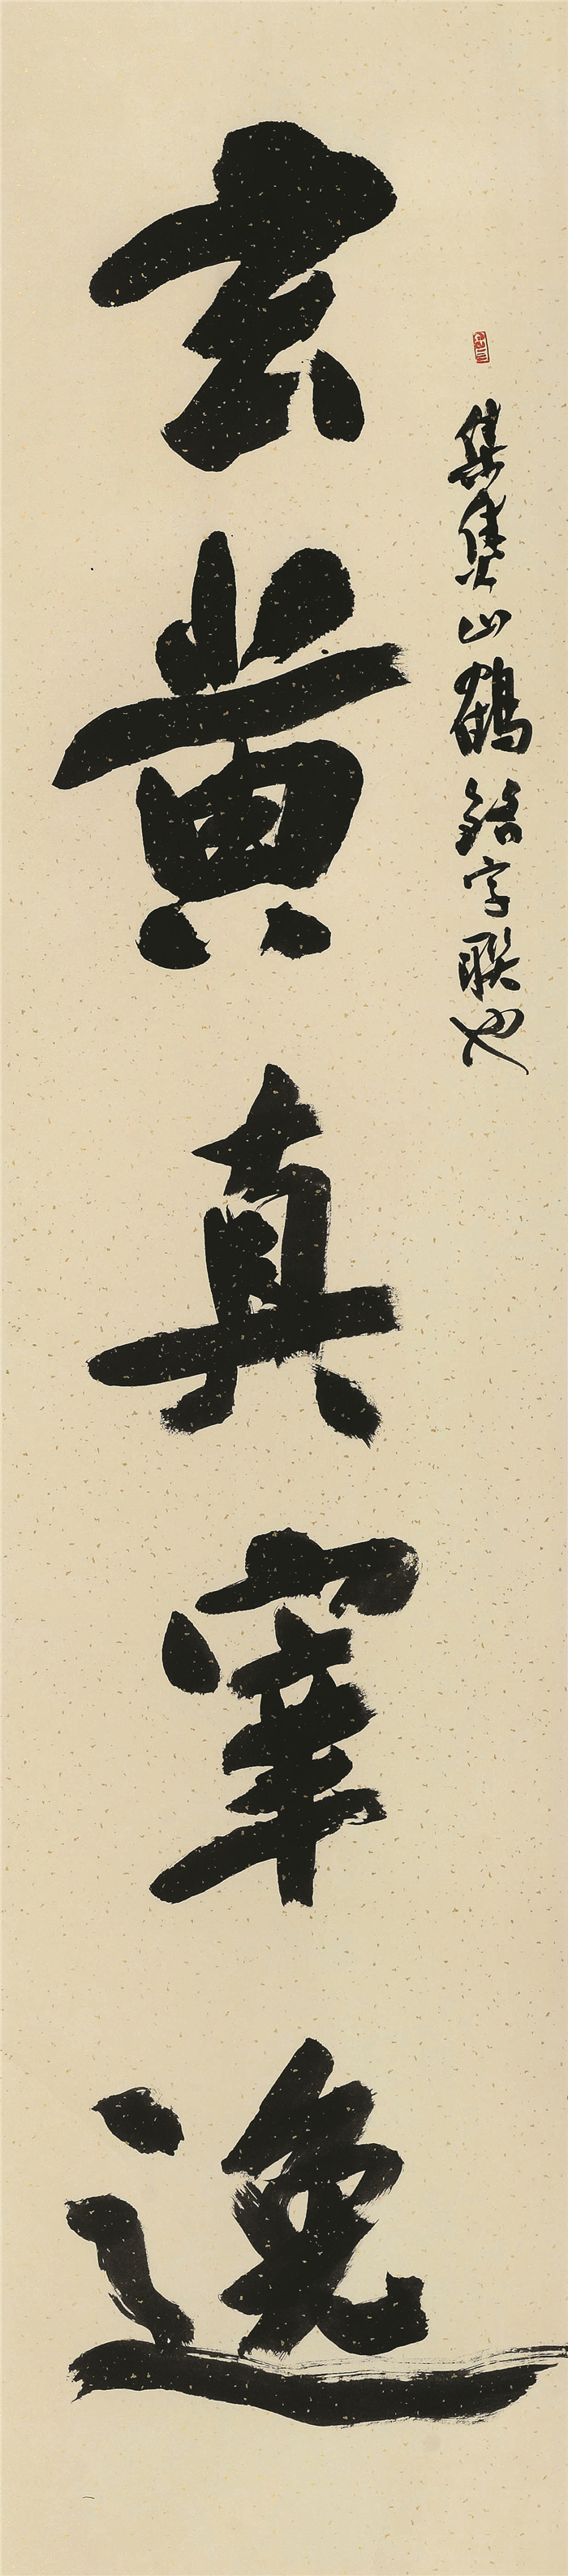 集焦山鶴銘字聯也
玄黄真宰逸